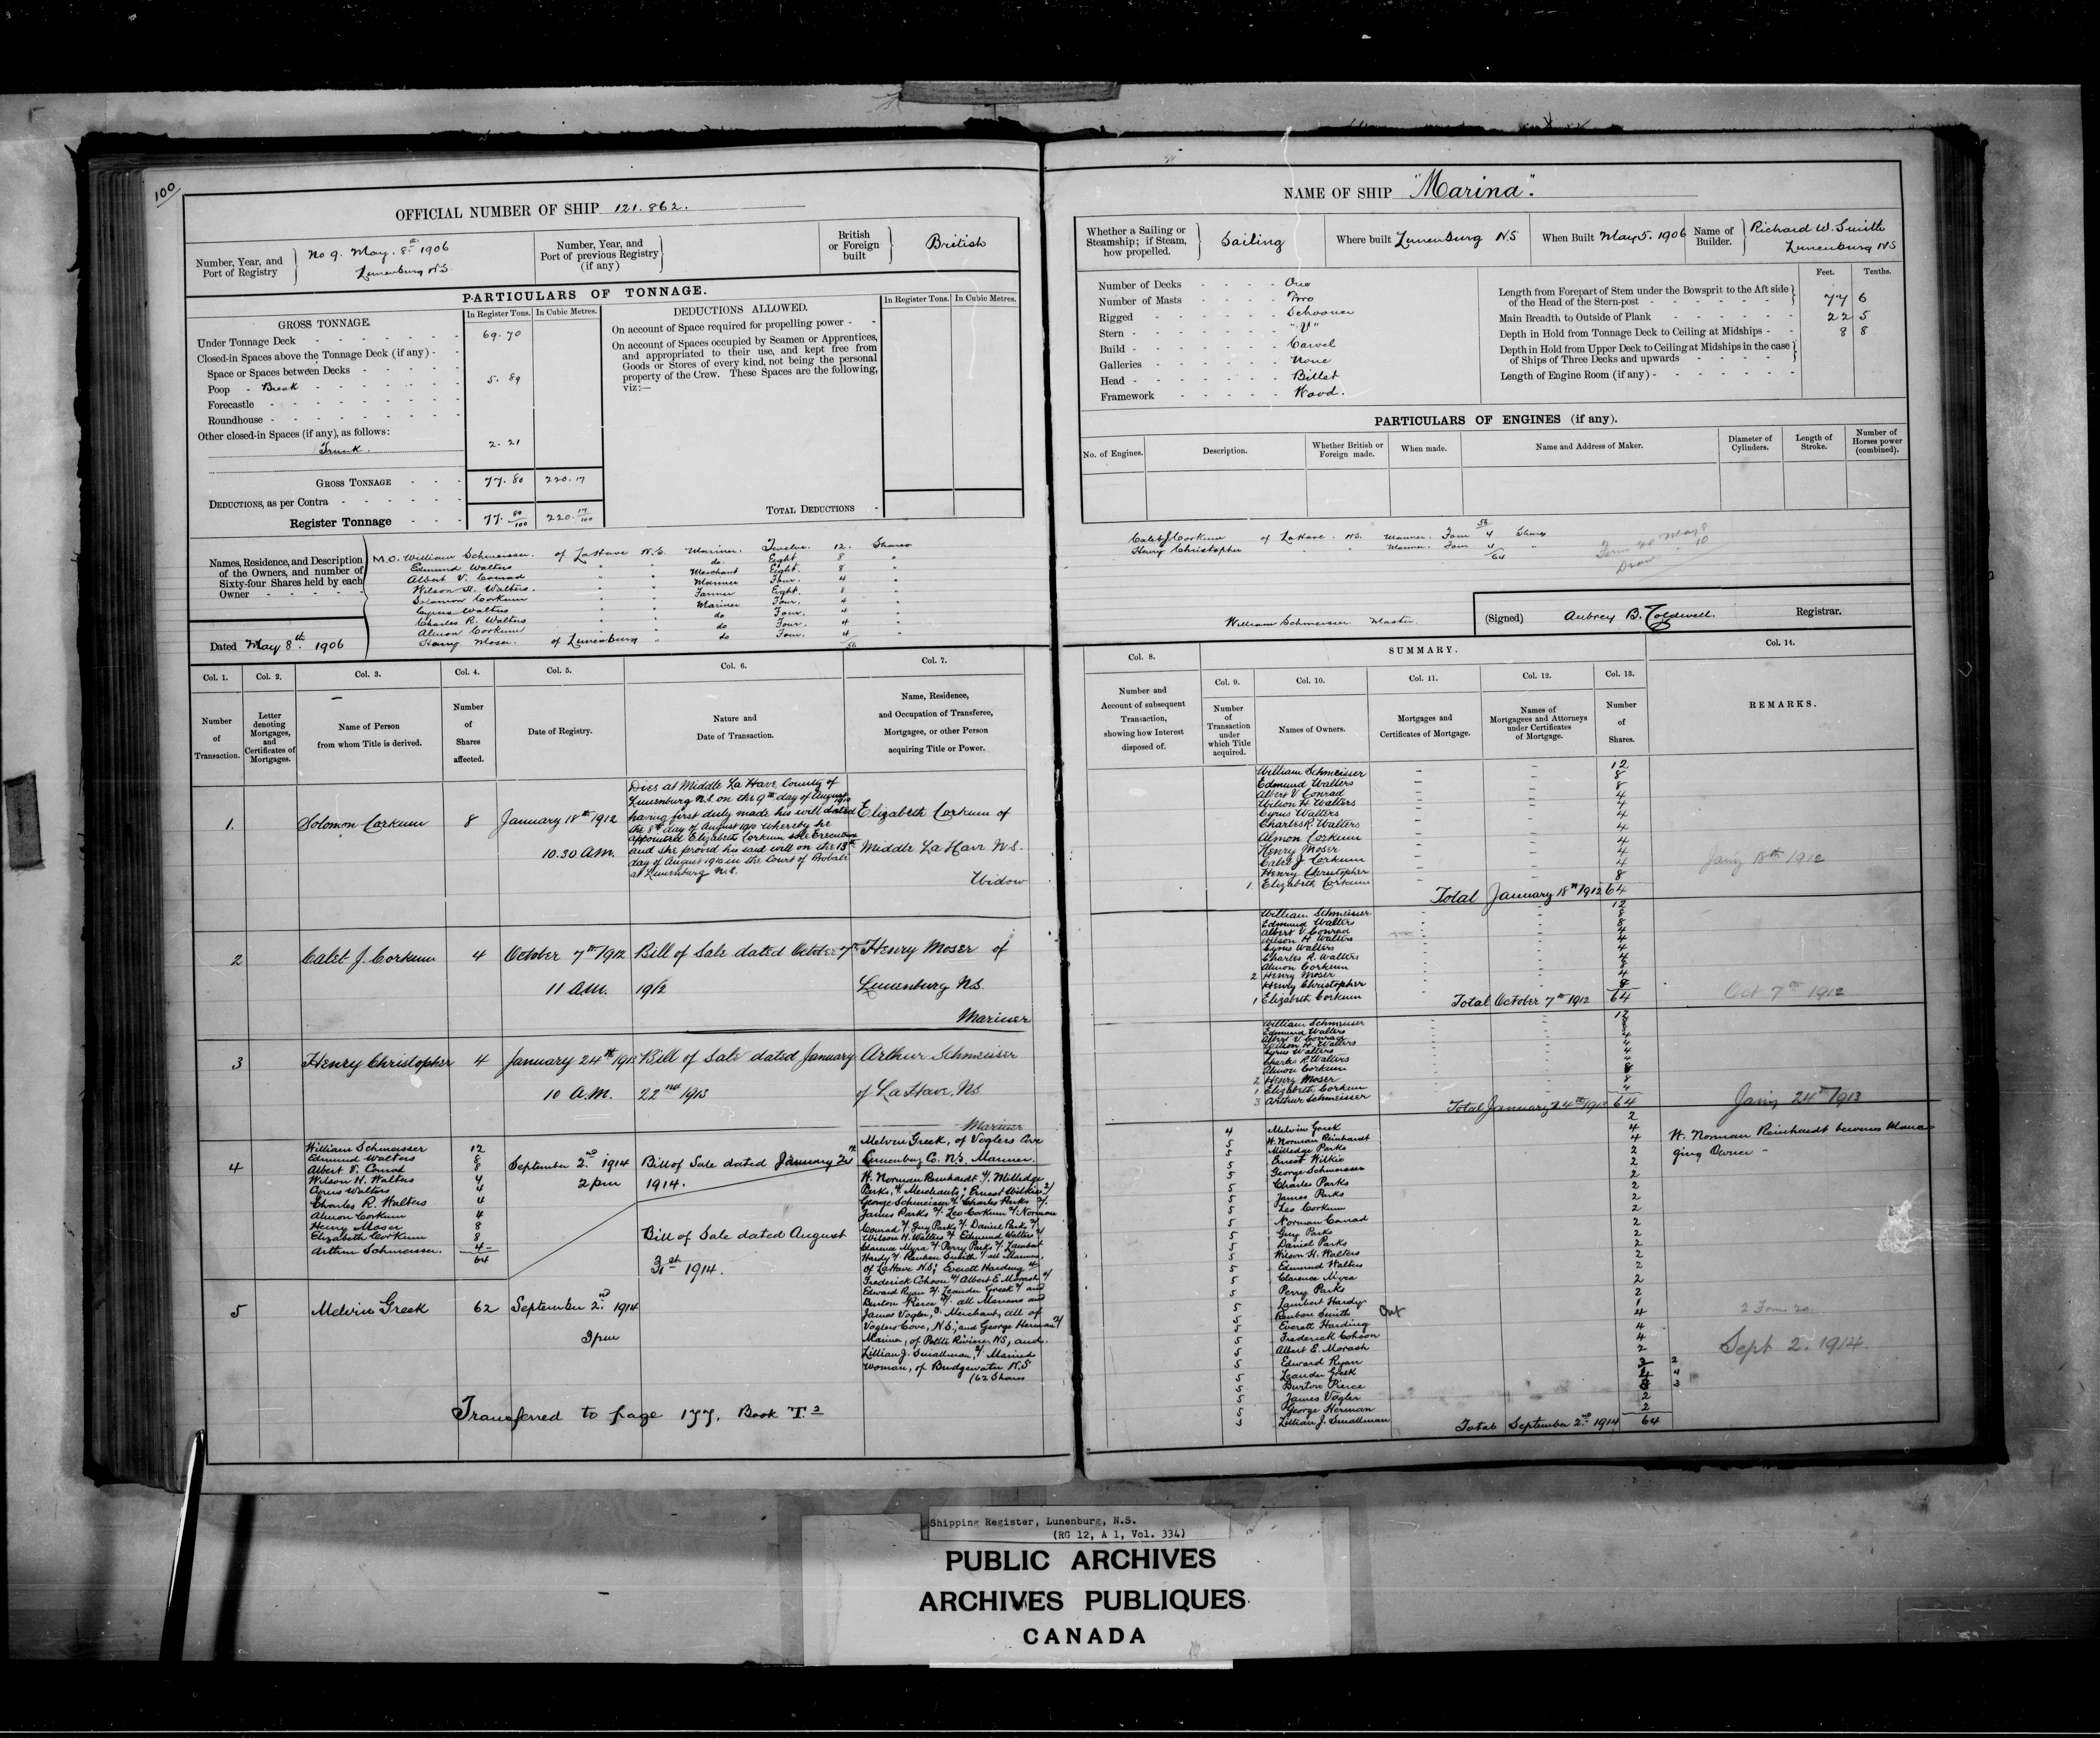 100
OFFICIAL NUMBER OF SHIP 121.862.
Number, Year, and Port of Registry
No 9. May. 8th 1906
Lunenburg N.S.
Number, Year, and Port of previous Registry (if any)
British or Foreign built
British
PARTICULARS OF TONNAGE.
GROSS TONNAGE.
In Register Tons.
In Cubic Metres.
Under Tonnage Deck 69.70
Closed-in Spaces above the Tonnage Deck (if any) -
Space or Spaces between Decks
Poop - Break 5.89
Forecastle
Roundhouse
Other closed-in Spaces (if any), as follows:
Trunk. 2.21
GROSS TONNAGE 77.80 220.17
DEDUCTIONS, as per Contra
Register Tonnage 77. 80/100 220. 17/100
DEDUCTIONS ALLOWED.
In Register Tons.
In Cubic Metres.
On account of Space required for propelling power -
On account of Spaces occupied by Seamen or Apprentices,
and appropriated to their use, and kept free from
Goods or Stores of every kind, not being the personal
property of the Crew. These Spaces are the following,
viz:—
TOTAL DEDUCTIONS
Names, Residence, and Description
of the Owners, and number of
Sixty-four Shares held by each
Owner
M.O. William Schmeisser. of LaHave N.S. Mariner. Twelve. 12. Shares
Edmund Walters " " do. Eight 8 "
Albert V. Conrad " " Merchant Eight. 8 "
Wilson H. Walters. " " Mariner Four. 4 "
Solomon Corkum " " Farmer Eight. 8 "
Cyrus Walters " " Mariner Four. 4 "
Charles R. Walters " " do Four. 4 "
Almon Corkum " " do Four. 4 "
Henry Moser of Lunenburg " do Four. 4 "
56
Dated May 8th. 1906
NAME OF SHIP "Marina".
Whether a Sailing or Steamship; if Steam, how propelled.
Sailing
Where built Lunenburg N.S
When Built May 5. 1906
Name of Builder.
Richard W. Smith
Lunenburg N.S
Number of Decks One
Number of Masts Two
Rigged Schooner
Stern "V"
Build Carvel
Galleries None
Head Billet
Framework Wood.
Feet. Tenths.
Length from Forepart of Stem under the Bowsprit to the Aft side
of the Head of the Stern-post 77 6
Main Breadth to Outside of Plank 22 5
Depth in Hold from Tonnage Deck to Ceiling at Midships - 8 8
Depth in Hold from Upper Deck to Ceiling at Midships in the case
of Ships of Three Decks and upwards
Length of Engine Room (if any)
PARTICULARS OF ENGINES (if any).
No. of Engines.
Description.
Whether British or Foreign made.
When made.
Name and Address of Maker.
Diameter of Cylinders.
Length of Stroke.
Number of Horses power (combined).
56
Caleb J. Corkum of LaHave. N.S. Mariner. Four 4 Shares
Henry Christopher " " Mariner Four 4 "
64
William Schmeisser Master.
(Signed) Aubrey B. Coldwell. Registrar.
Col. 1.
Number of Transaction.
Col. 2.
Letter denoting Mortgages, and Certificates of Mortgages.
Col. 3.
Name of Person from whom Title is derived.
Col. 4.
Number of Shares affected.
Col. 5.
Date of Registry.
Col. 6.
Nature and Date of Transaction.
Col. 7.
Name, Residence, and Occupation of Transferee, Mortgagee, or other Person acquiring Title or Power.
Col. 8.
Number and Account of subsequent Transaction, showing how Interest disposed of.
SUMMARY.
Col. 9.
Number of Transaction under which Title acquired.
Col. 10.
Names of Owners.
Col. 11.
Mortgages and Certificates of Mortgage.
Col. 12.
Names of Mortgagees and Attorneys under Certificates of Mortgage.
Col. 13.
Number of Shares.
Col. 14.
REMARKS.
1. Solomon Corkum 8 January 18th 1912
10.30 A.M.
Dies at Middle La Have County of
Lunenburg N.S. on the 9th day of August 1910
having first duly made his will dated
the 8th day of August 1910 whereby he
appointed Elizabeth Corkum sole Executrix
and she proved his said will on the 13th
day of August 1910 in the Court of Probate
at Lunenburg N.S.
Elizabeth Corkum of
Middle La Have N.S.
Widow
William Schmeisser 12
Edmund Walters 8
Albert V Conrad 8
Wilson H. Walters 4
Cyrus Walters 4
Charles R. Walters 4
Almon Corkum 4
Henry Moser 4
Caleb J Corkum 4
Henry Christopher 4
1. Elizabeth Corkum 8
Total January 18th 1912 64
Jany 18th 1912
2 Calet J. Corkum 4 October 7th 1912
11 A.M.
Bill of Sale dated October 7th
1912
Henry Moser of
Lunenburg N.S.
Mariner
William Schmeisser 12
Edmund Walters 8
Albert V Conrad
Wilson H Walters 4
Cyrus Walters 4
Charles R. Walters 4
Almon Corkum 4
2 Henry Moser 8
Henry Christopher 4
1 Elizabeth Corkum 8
Total October 7th 1912 64
Oct 7th 1912
3 Henry Christopher 4 January 24th 1913
10 A.M.
Bill of Sale dated January
22nd 1913
Arthur Schmeisser
of La Have. N.S.
Mariner
William Schmeisser 12
Edmund Walters
Albert V Conrad
Wilson H. Walters
Cyrus Walters 4
Charles R. Walters 4
Almon Corkum 4
2 Henry Moser 8
1 Elizabeth Corkum 8
3 Arthur Schmeisser 4
Total January 24th 1913 64
Jany 24th 1913
4
William Schmeisser 12
Edmund Walters 8
Albert V. Conrad 8
Wilson H. Walters 4
Cyrus Walters 4
Charles R. Walters 4
Almon Corkum 4
Henry Moser 8
Elizabeth Corkum 8
Arthur Schmeisser. 4
64
September 2nd 1914
2 pm
Bill of Sale dated January
1914.
Melvin Greek, of Voglers Cove
Lunenburg Co. N.S. Mariner.
5 Melvin Greek 62 September 2nd 1914
3 pm
Bill of Sale dated August
31st 1914.
H. Norman Reinhardt 4/. Milledge
Parks, 4/. Merchants; Ernest Wilkie 2/
George Schmeisser 2/. Charles Parks 2/.
James Parks 2/. Leo Corkum 2/. Norman
Conrad 2/. Guy Parks 2/. Daniel Parks 2/.
Wilson H. Walters 2/. Edmund Walters 2/
Clarence Myra 2/. Perry Parks 2/. Lambert
Hardy 2/. Reuben Smith 1/ all Mariners,
of LaHave N.S; Everett Harding 4/
Frederick Cohoon 4/ Albert E. Morash 4/
Edward Ryan 2/. Leander Greek 2/ and
Burton Pierce 4/. all Mariners and
James Vogler, 3. Merchant, all of
Voglers Cove, N.S; and George Herman 2/
Mariner, of Petite Riviere, N.S, and
Lillian J. Smallman, 2/. Married
Woman, of Bridgewater N.S
(62 Shares
4 Melvin Greek 2
5 H. Norman Reinhardt 4
5 Milledge Parks 4
5 Ernest Wilkie 2
5 George Schmeisser 2
5 Charles Parks 2
5 James Parks 2
5 Leo Corkum 2
5 Norman Conrad 2
5 Guy Parks 2
5 Daniel Parks 2
5 Wilson H. Walters 2
5 Edmund Walters 2
5 Clarence Myra 2
5 Perry Parks 2
5 Lambert Hardy 2
5 Reuben Smith 1
5 Everett Harding 4
5 Frederick Cohoon 4
5 Albert E. Morash 4
5 Edward Ryan 2
5 Leander Greek 2
5 Burton Pierce 4
5 James Vogler 3
5 George Herman 2
5 Lillian J. Smallman 2
Total September 2nd 1914 64
H. Norman Reinhardt becomes Mana
ging Owner -
Out
Sept 2. 1914.
Transferred to page 177, Book T.2
Shipping Register, Lunenburg, N.S.
(RG 12, A 1, Vol. 334)
PUBLIC ARCHIVES
ARCHIVES PUBLIQUES
CANADA